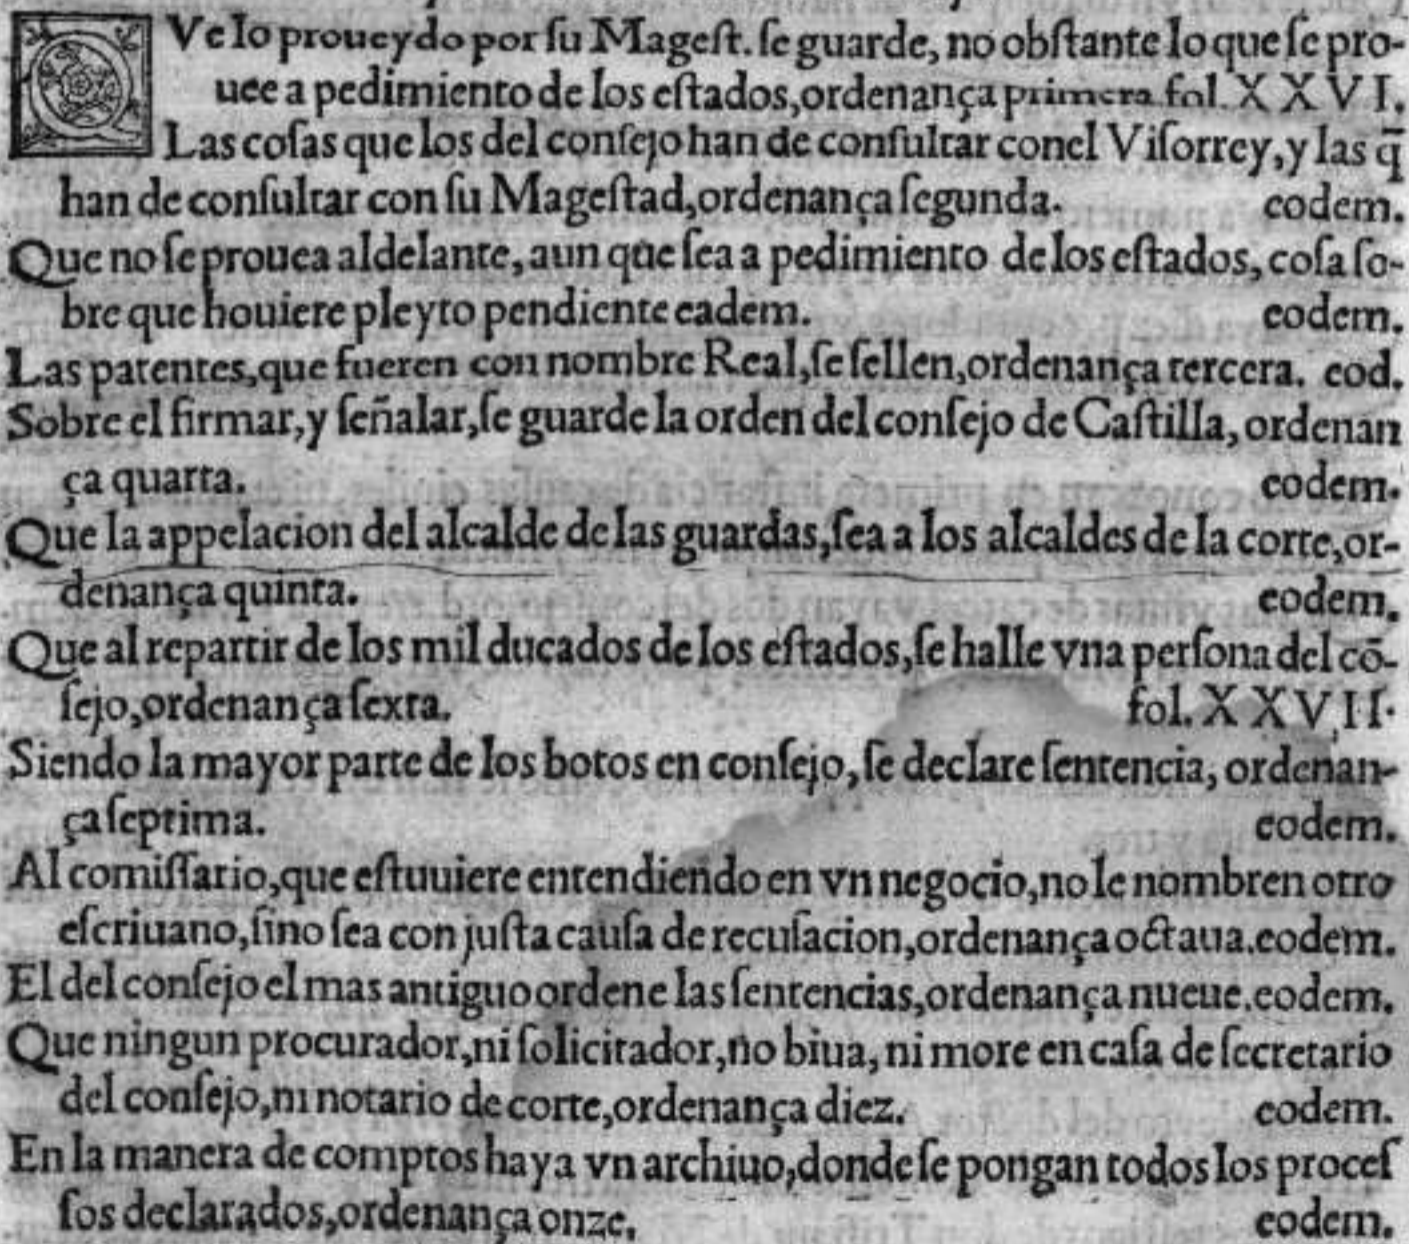 QVe lo proueydo por ſu Mageſt. ſe guarde, no obſtante lo que ſe pro-
uee a pedimiento de los eſtados,ordenança primera fol. XXVI.
Las coſas que los del conſejo han de conſultar conel Viſorrey,y las q̃
han de conſultar con ſu Mageſtad,ordenança ſegunda. eodem.
Que no ſe prouea aldelante, aun que ſea a pedimiento de los eſtados, coſa ſo-
bre que houiere pleyto pendiente eadem. eodem.
Las patentes,que fueren con nombre Real,ſe ſellen,ordenança tercera. eod.
Sobre el firmar,y ſeñalar,ſe guarde la orden del conſejo de Caſtilla, ordenan
ça quarta. eodem.
Que la appelacion del alcalde de las guardas,ſea a los alcaldes de la corte,or-
denança quinta. eodem.
Que al repartir de los mil ducados de los eſtados,ſe halle vna perſona del cõ-
ſejo,ordenança ſexta. fol. XXVII.
Siendo la mayor parte de los botos en conſejo, ſe declare ſentencia, ordenan-
ça ſeptima. eodem.
Al comiſſario,que eſtuuiere entendiendo en vn negocio,no le nombren otro
eſcriuano,ſino ſea con juſta cauſa de recuſacion,ordenança octaua.eodem.
El del conſejo el mas antiguo ordene las ſentencias,ordenança nueue.eodem.
Que ningun procurador,ni ſolicitador,no biua, ni more en caſa de ſecretario
del conſejo,ni notario de corte,ordenança diez. eodem.
En la manera de comptos haya vn archiuo,donde ſe pongan todos los proceſ
ſos declarados,ordenança onze. eodem.